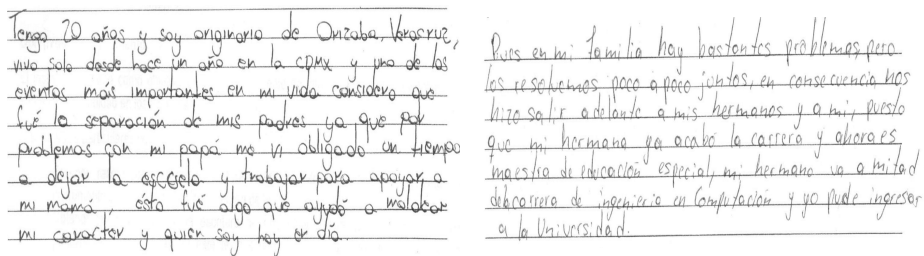 Tengo 20 años y soy originario de Orizaba, Veracruz,
vivo solo desde hace un año en la CDMX y uno de los
eventos más importantes en mi vida considero que
fué la separación de mis padres ya que por
problemas con mi papá me vi obligado un tiempo
a dejar la escuela y trabajar para apoyar a
mi mamá, esto fué algo que ayudó a moldear
mi caracter y quien soy hoy en día.
Pues en mi familia hay bastantes problemas, pero
los resolvemos poco a poco juntos, en consecuencia nos
hizo salir adelante a mis hermanos y a mi, puesto
que mi hermana ya acabó la carrera y ahora es
maestra de educación especial, mi hermano va a mitad
de carrera de ingenieria en Computación y yo pude ingresar
a la Universidad.